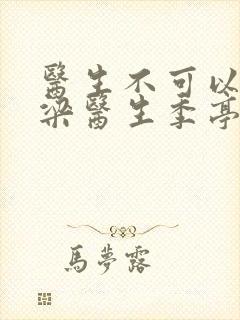 醫生不可以
梁醫生季亭
馬夢露